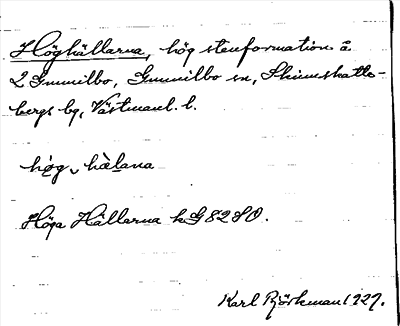 Höghällarna, hög stenformation å
L Gunnilbo, Gunnilbo sn, Skinnskatte-
bergs bg, Västmanl. l.
hög, hälana
Höga Hällarna k G 8280.
Karl Björkman 1927.